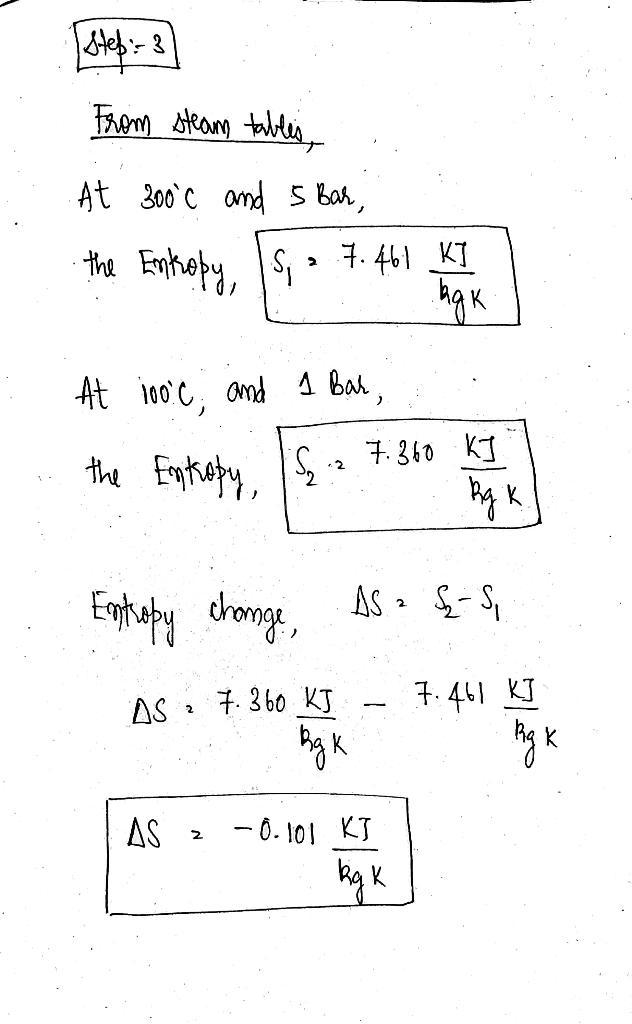 Step:- 3
From steam tables,
At 300°C and 5 Bar,
the Entropy, S₁ = 7.461 KJ/kg K
At 100°C, and 1 Bar,
the Entropy, S₂ = 7.360 KJ/kg K
Entropy change, ΔS = S₂ - S₁
ΔS = 7.360 KJ/kg K - 7.461 KJ/kg K
ΔS = -0.101 KJ/kg K